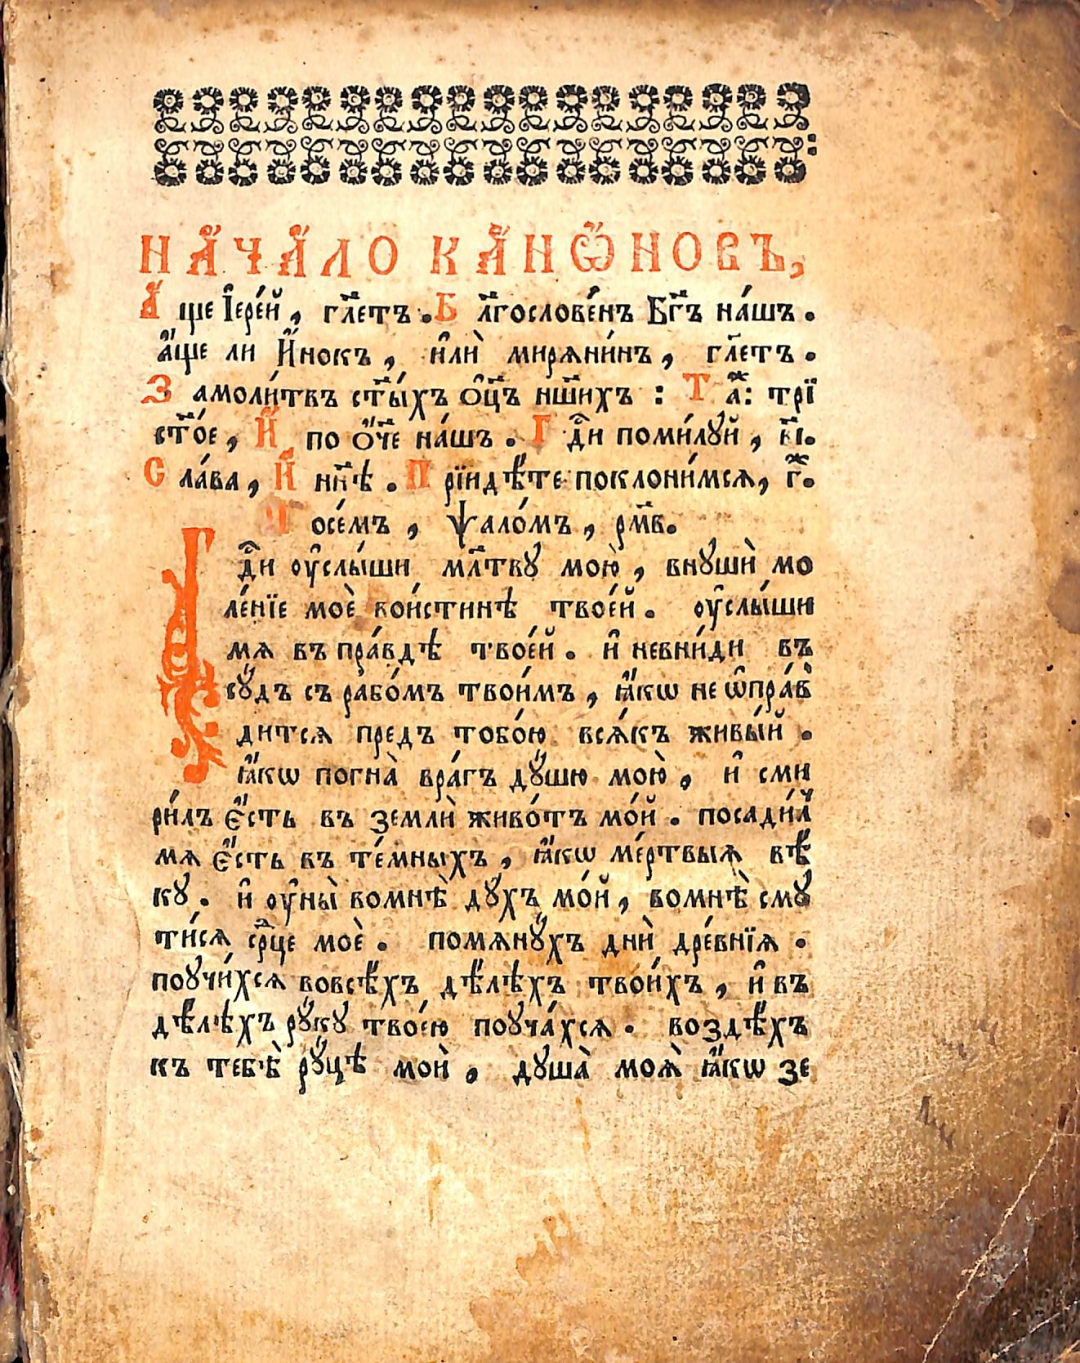 НАЧАЛО КАНѠНОВЪ,
А҆́ще І҆ере́й, гл҃етъ. Бл҃гослове́нъ Бг҃ъ на́шъ.
а҆́ще ли И҆́нокъ, и҆лѝ миряни́нъ, гл҃етъ.
Замоли́твъ ст҃ы́хъ ѻ҆ц҃ъ нш҃ихъ : Та́ж: трї
ст҃о́е, И҆ по ѻ҆́ч҃е на́шъ. Гд҃и поми́луй, в҃і.
Сла́ва, И҆ нн҃ѣ. Прїидѣ́те поклони́мся, г҃ж.
Посе́мъ, ѱало́мъ, рм҃в.
Гд҃и ᲂу҆слы́ши мл҃тву мою̀, внушѝ мо
ле́нїе моѐ вои́стинѣ твое́й. ᲂу҆слы́ши
мя въ пра́вдѣ твое́й. и҆ невни́ди въ
су́дъ съ рабо́мъ твои́мъ, ꙗ҆́кѡ не ѡ҆пра́в
дится предъ тобо́ю вся́къ живы́й.
ꙗ҆́кѡ погна̀ вра́гъ ду́шю мою̀, и҆ сми
ри́лъ є҆́сть въ землѝ живо́тъ мо́й. посади́л
мя є҆́сть въ те́мныхъ, ꙗ҆́кѡ ме́ртвыꙗ вѣ́
ку. и҆ ᲂу҆ны̀ вомнѣ̀ ду́хъ мо́й, вомнѣ̀ сму
ти́ся ср҃це моѐ. помяну́хъ днѝ дре́внїя.
поучи́хся вовсѣ́хъ дѣ́лѣхъ твои́хъ, и҆ въ
дѣ́лѣхъ ру́ку твое́ю поуча́хся. воздѣ́хъ
къ тебѣ̀ ру́цѣ моѝ, душа̀ моꙗ̀ ꙗ҆́кѡ зе